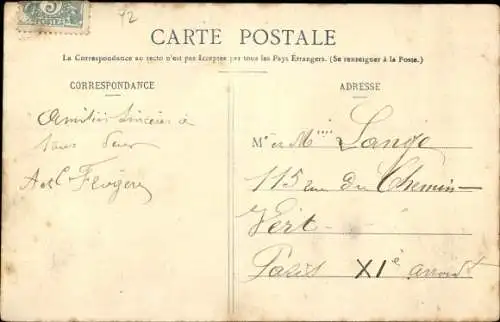 72
5
POSTES
CARTE POSTALE
La Correspondance au recto n'est pas acceptée par tous les Pays Étrangers. (Se renseigner à la Poste.)
CORRESPONDANCE
Amitiés sincères à
tous deux
A et C
ADRESSE
M r et M me
115 rue du Chemin
Vert
Paris XI e arrondt